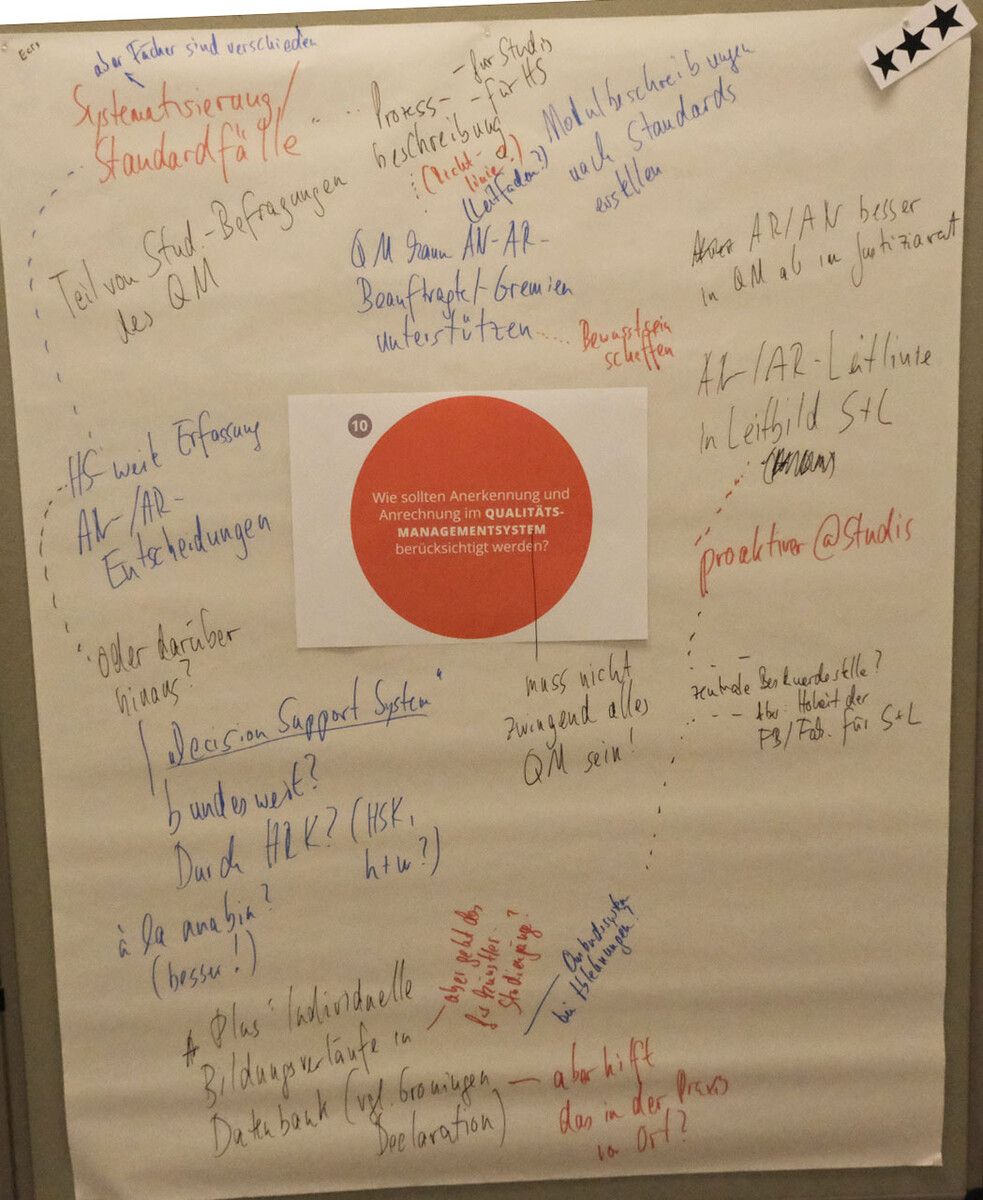 aber Fächer sind verschieden
Systematisierung/
Standardfälle
Prozess-
beschreibung
- für Studis
- für HS
(Richt-
linie?)
(Leitfaden?)
Modulbeschreibungen
nach Standards
erstellen
Teil von Stud.-Befragungen
des QM
QM kann AN-AR-
Beauftragte/-Gremien
unterstützen
Bewusstsein
schaffen
AR/AN besser
in QM als in Justiziariat
AN-/AR-Leitlinie
in Leitbild S+L
proaktiver @Studis
10
Wie sollten Anerkennung und
Anrechnung im QUALITÄTS-
MANAGEMENTSYSTEM
berücksichtigt werden?
HS-weite Erfassung
AN-/AR-
Entscheidungen
oder darüber
hinaus?
muss nicht
zwingend alles
QM sein!
zentrale Beschwerdestelle?
Aber: Hoheit der
FB/Fak. für S+L
"Decision Support System"
bundesweit?
Durch HRK? (HSK,
h+w?)
à la anabin?
(besser!)
Plus: Individuelle
Bildungsverläufe in
Datenbank (vgl. Groningen
Declaration)
aber geht das
für Künstler.
Studiengänge?
bei Ablehnungen?
aber hilft
das in der Praxis
vor Ort?